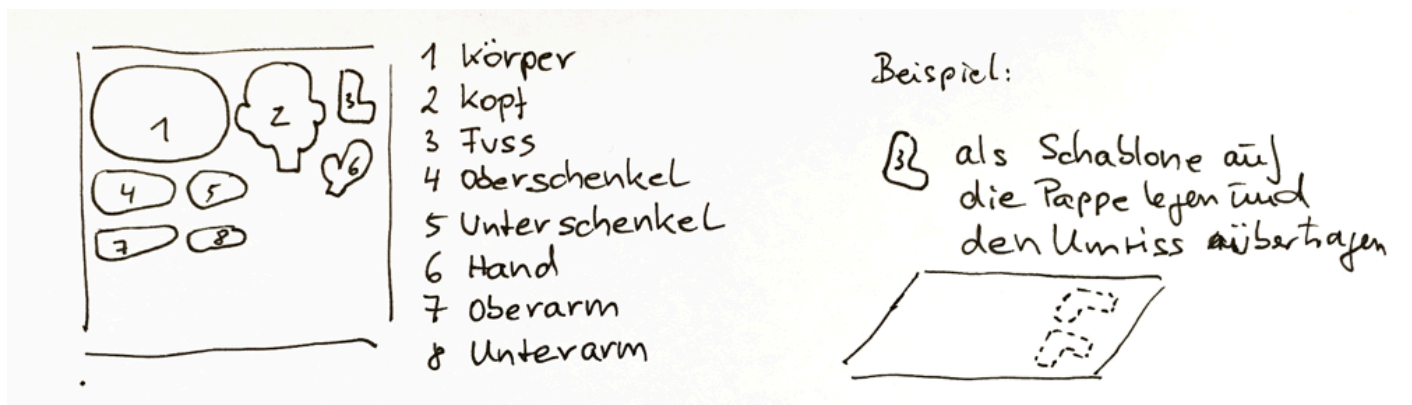 1
2
3
4
5
6
7
8
1 Körper
2 Kopf
3 Fuss
4 Oberschenkel
5 Unterschenkel
6 Hand
7 Oberarm
8 Unterarm
Beispiel:
3 als Schablone auf
die Pappe legen und
den Umriss übertragen